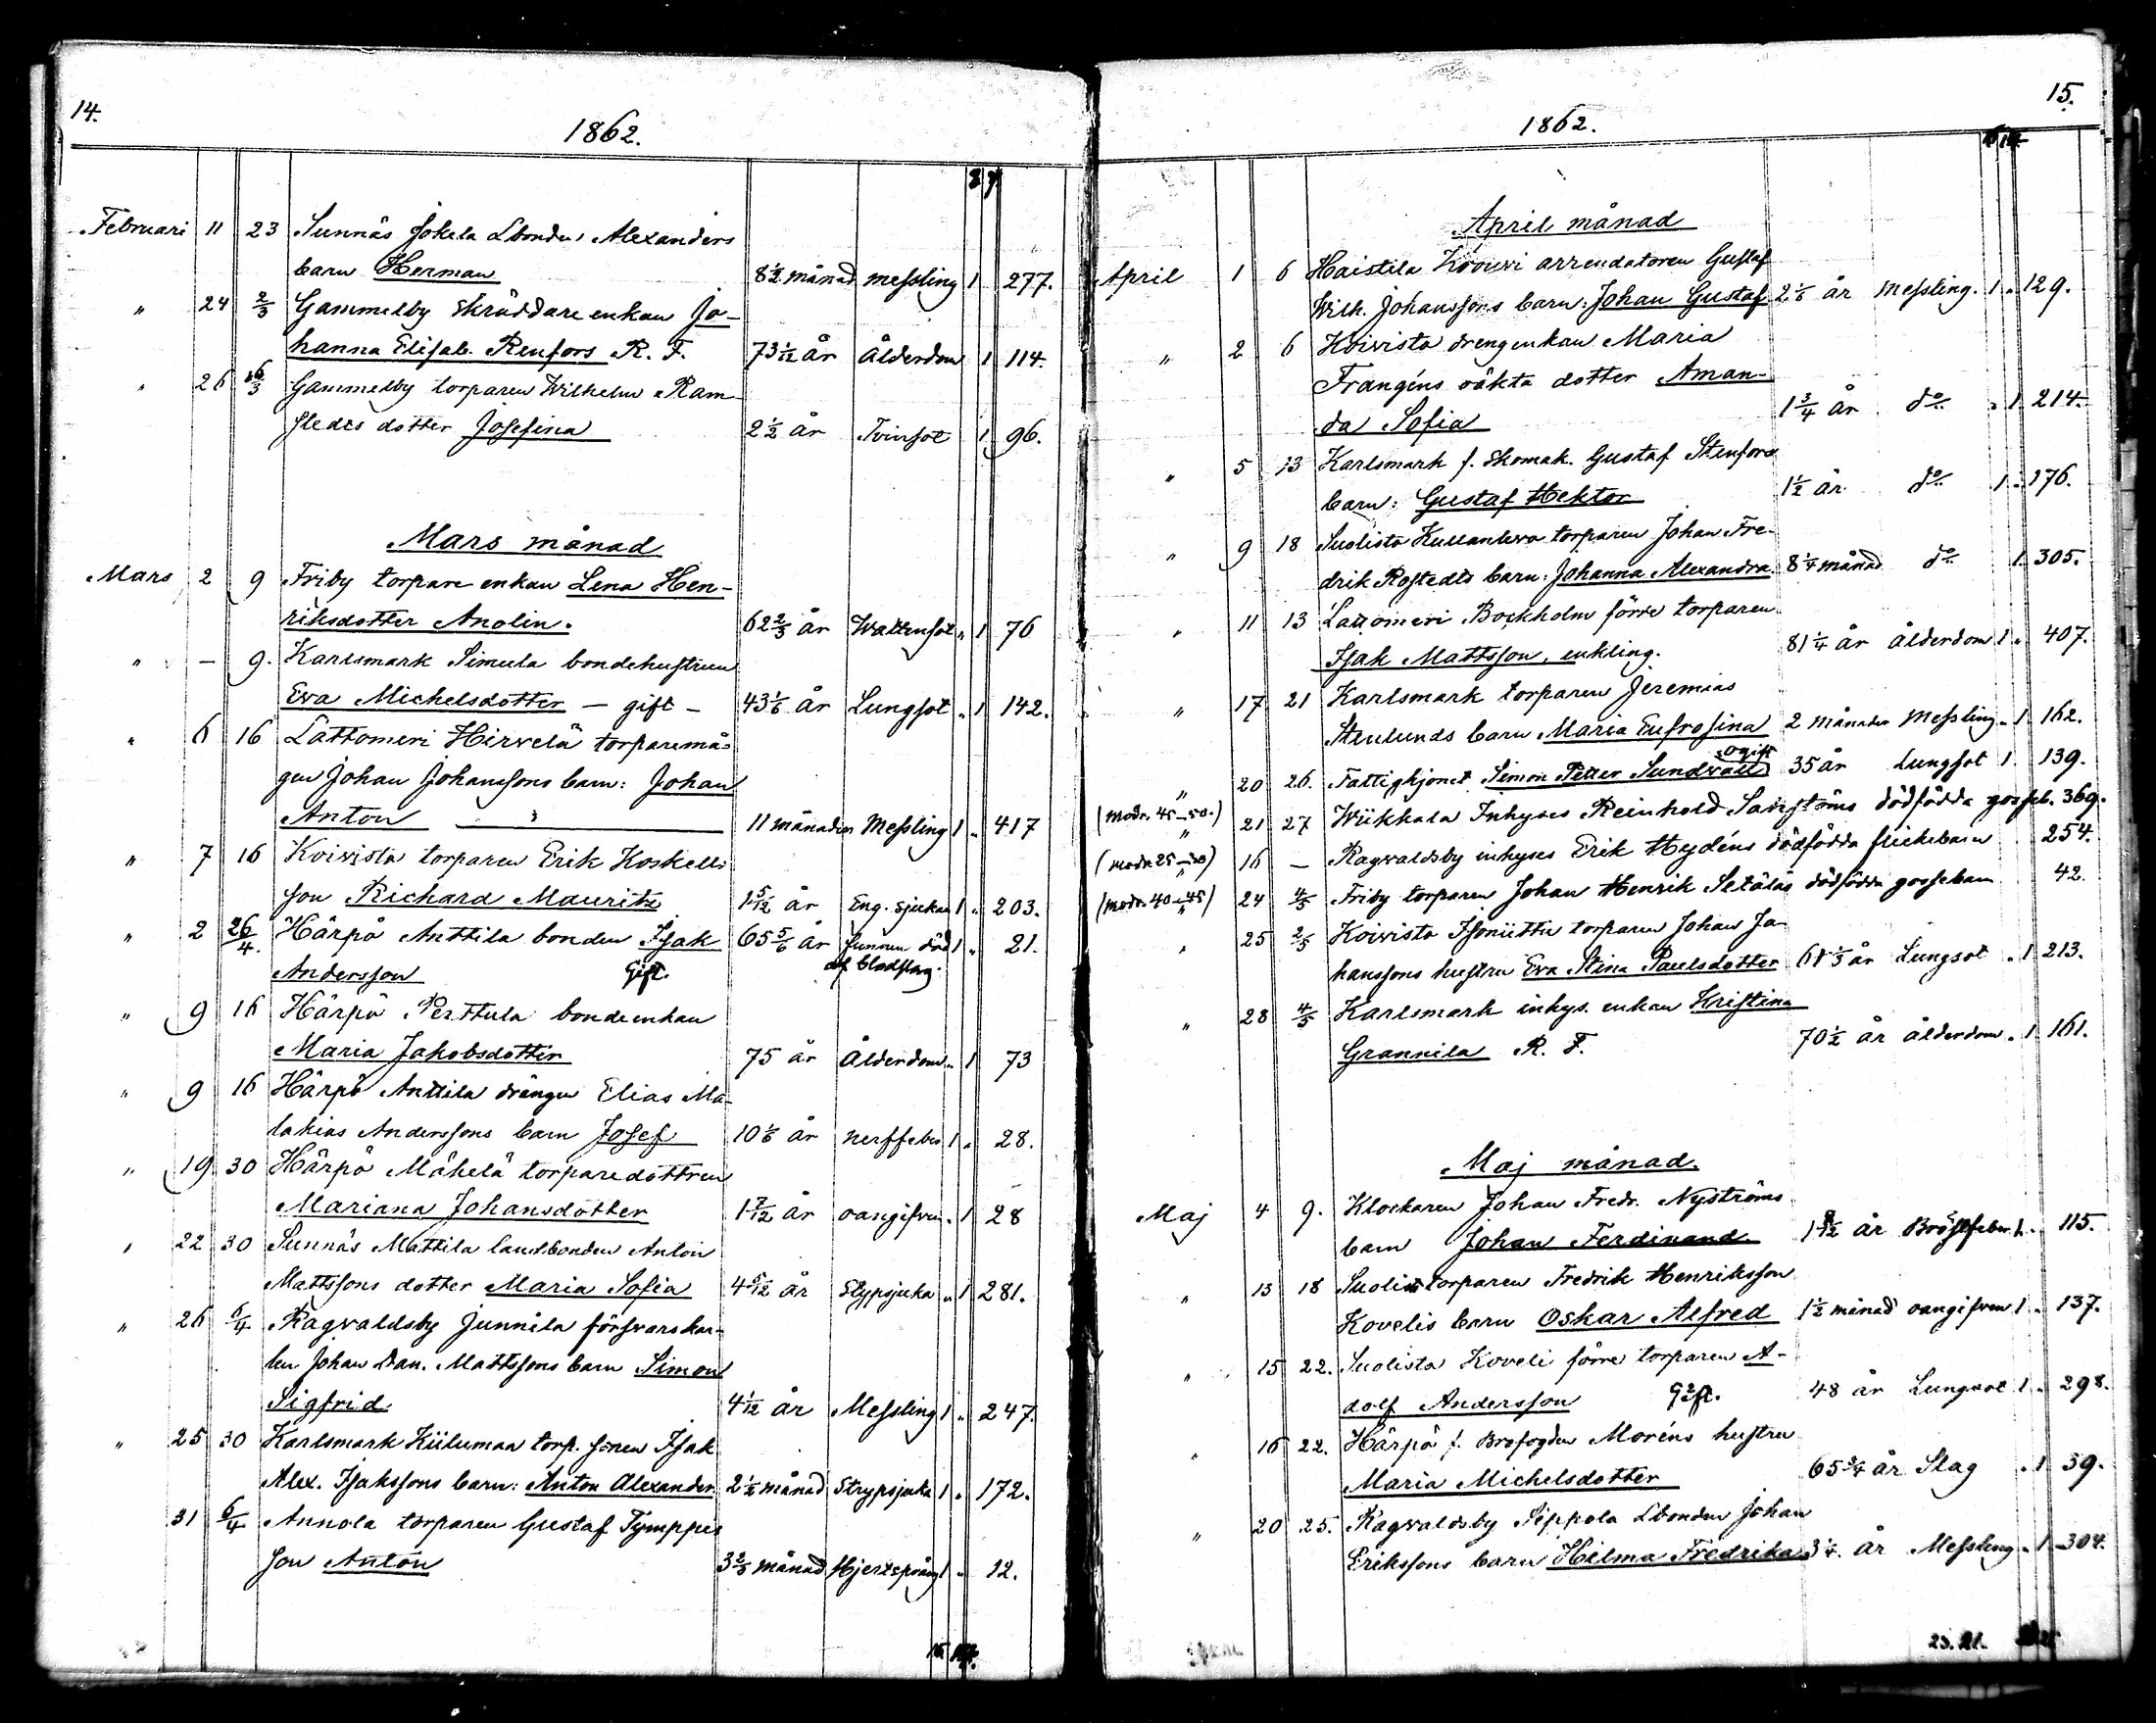 14.
1862.
8 7
Februari 11 23 Sunnäs Jokela Lbonden Alexanders
barn Herman 8 1/2 månad messling 1 277.
" 24 2/3 Gammelby Skräddare enkan Jo-
hanna Elisab. Renfors R. F. 73 1/12 år Ålderdom 1 114.
" 26 16/3 Gammelby torparen Wilhelm Ram-
stedts dotter Josefina 2 1/2 år Tvinsot 1 96.
Mars månad
Mars 2 9 Friby torpare enkan Lena Hen-
riksdotter Anolin. 62 2/3 år Wattensot " 1 76
" — 9. Karlsmark Simula bondehustrun
Eva Michelsdotter — gift — 43 1/6 år Lungsot " 1 142.
" 6 16 Lattomeri Hirvelä torparemå-
gen Johan Johanssons barn: Johan
Anton 11 månader Messling 1 " 417
" 7 16 Koivisto torparen Erik Koskelis
son Richard Mauritz 1 5/12 år Eng. sjukan 1 " 203.
" 2 26/4. Härpö Anttila bonden Isak 65 5/6 år funnen död 1 " 21.
Andersson Gift. af blodslag.
" 9 16 Härpö Perttula bondeenkan
Maria Jakobsdotter 75 år Ålderdom " 1 73
" 9 16 Härpö Anttila drängen Elias Ma-
lakias Anderssons barn Josef 10 1/6 år nerffeber 1 " 28.
" 19 30 Härpö Mäkelä torparedottren
Mariana Johansdotter 1 7/12 år oangifven " 1 28
" 22 30 Sunnäs Mattila landbonden Anton
Mattssons dotter Maria Sofia 4 5/12 år Stypsjuka " 1 281.
" 26 6/4 Ragvaldsby Junnila försvarskar-
len Johan Dan. Mattssons barn Simon
Sigfrid. 4 1/12 år Messling 1 " 247.
" 25 30 Karlsmark Kiilumaa torp. sonen Isak
Alex. Isakssons barn: Anton Alexander 2 1/2 månad Strypsjuka 1 " 172.
31 6/4 Annola torparen Gustaf Tymppis
son Anton 3 2/3 månad Hjertsprång 1 " 12.
15.
1862.
April månad
April 1 6 Haistila Krouvi arrendatoren Gustaf
Wilh. Johanssons barn: Johan Gustaf 2 1/6 år Messling. 1 " 129.
" 2 6 Koivisto drengenkan Maria
Frangéns oäkta dotter Aman-
da Sofia 1 3/4 år do " 1 214.
" 5 13 Karlsmark f. Skomak. Gustaf Stenfors
barn: Gustaf Hektor 1 1/2 år do 1 " 176.
" 9 18 Suolisto Kullanlera torparen Johan Fre-
drik Rostedts barn: Johanna Alexandra 8 1/4 månad do 1 305.
" 11 13 Lattomeri Bockholm förre torparen
Isak Mattsson, enkling. 81 1/4 år ålderdom 1 " 407.
" 17 21 Karlsmark torparen Jeremias
Stenlunds barn Maria Eufrosina 2 månader Messling " 1 162.
ogift
" 20 26. Fattighjonet Simon Petter Sundvall 35 år Lungsot 1 139.
(modr. 45–50.) 21 27 Wiikkala Inhyses Reinhold dödfödda gosseb. 369.
(modr. 25–30) 16 — Ragvaldsby inhyses Erik Hydéns dödfödda flickebarn 254.
(modr. 40–45) 24 4/5 Friby torparen Johan Henrik Setäläs dödfödda gossebarn 42.
" 25 2/5 Koivisto Isoniittu torparen Johan Jo-
hanssons hustru Eva Stina Paulsdotter 61 1/3 år Lungsot " 1 213.
" 28 4/5 Karlsmark inhys. enkan Kristina
Grannila R. F. 70 1/2 år ålderdom " 1 161.
Maj månad.
Maj 4 9. Klockaren Johan Fredr. Nyströms
barn Johan Ferdinand 1 år Bröstfeber 1 " 115.
" 13 18 Suolisto torparen Fredrik Henriksson
Kovelis barn Oskar Alfred 1 1/2 månad oangifven 1 " 137.
" 15 22. Suolisto Koveli förre torparen A-
dolf Andersson Gift. 48 år Lungsot 1 " 298.
" 16 22. Härpö f. Brofogden Moréns hustru
Maria Michelsdotter 65 3/4 år Slag " 1 39.
" 20 25. Ragvaldsby Pippola Lbonden Johan
Erikssons barn Hilma Fredrika 3 1/4 år Messling " 1 304.
23. 21.